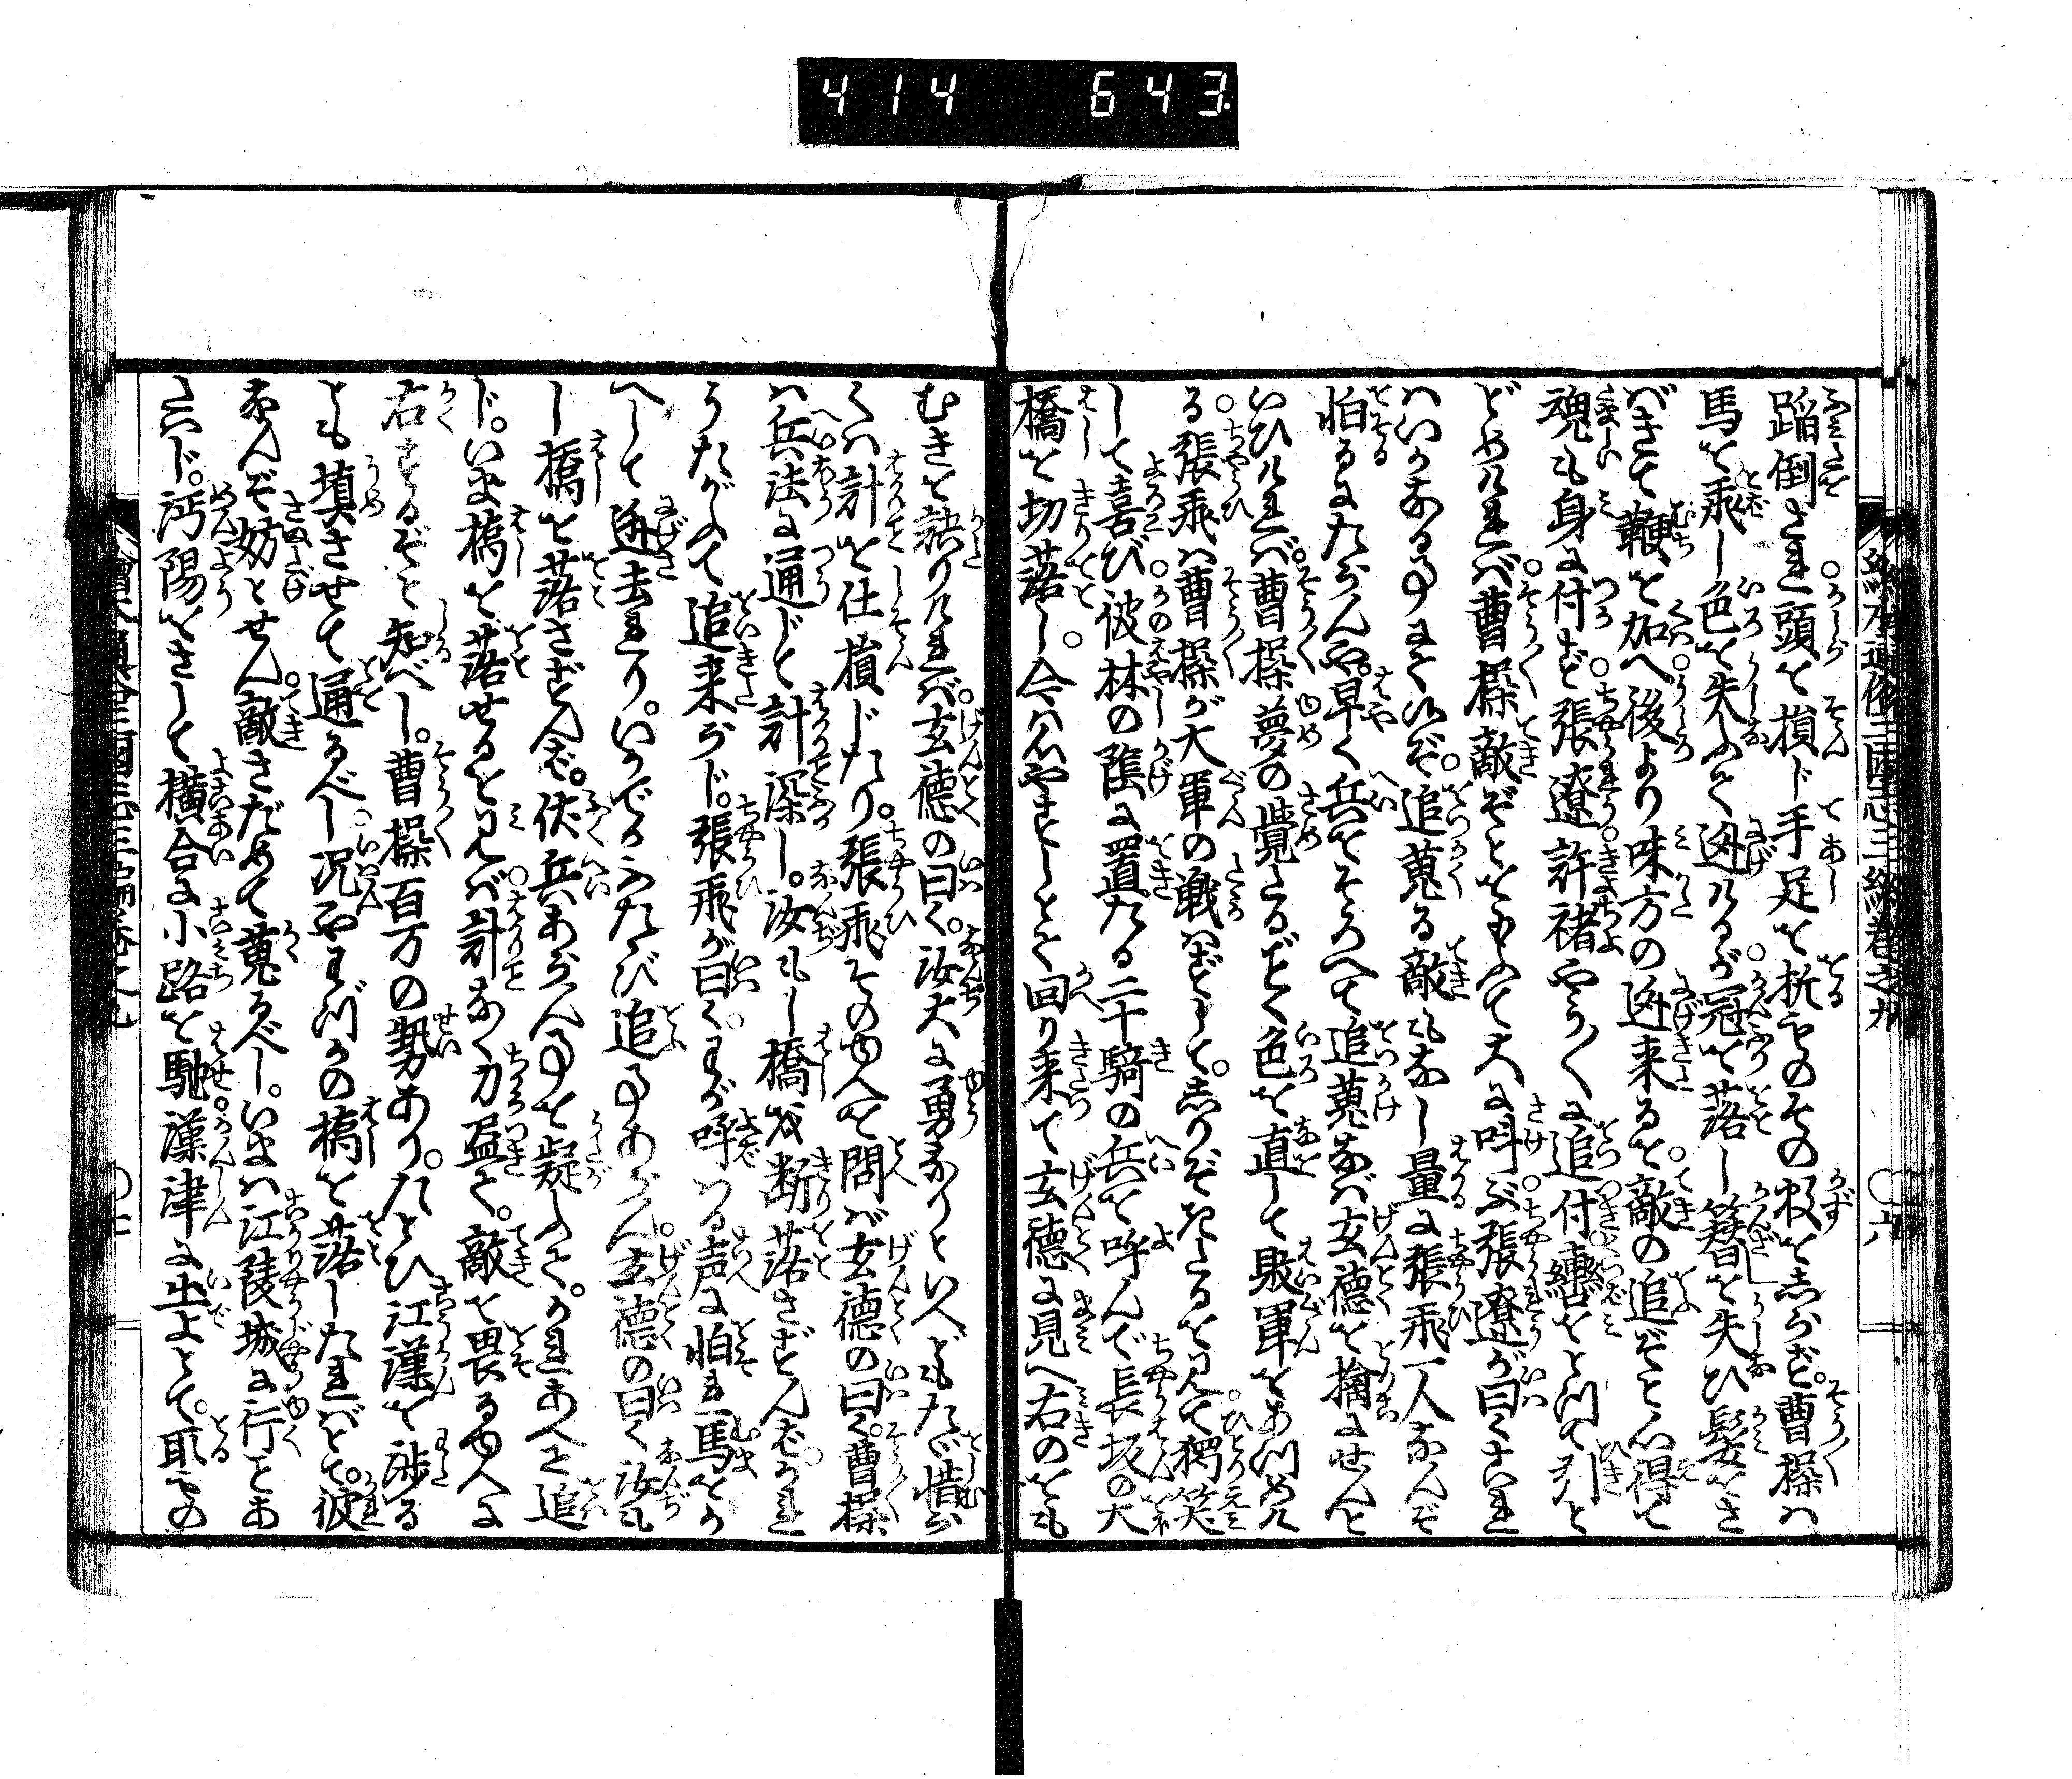 414 643
繪本通俗三国志三編巻之九
〇六
蹈倒され頭を損じ手足を折ものその数をしらず。曹操は
馬を飛し色を失ふて逃けるが冠を落し簪を失ひ髪をさ
ばきて鞭を加へ後より味方の逃来るを敵の追ぞと心得て
魂も身に付ず張遼許褚やう〳〵に追付轡をとつて引と
どめければ曹操敵ぞとをもふて大に叫ぶ張遼が曰くされ
はいかなる事にて候ぞ。追蒐る敵もなし量に張飛一人なんぞ
怕るにたらんや。早く兵をそろへて追蒐なば玄徳を擒にせんと
いひければ。曹操夢の覚たるごとく色を直して敗軍をあつめけ
る張飛は曹操が大軍の戦はずして。しりぞきたるを見て独笑
して喜び彼林の蔭に置たる二十騎の兵を呼んで長坂の大
橋を切落し。今は心やすしとて回り来て玄徳に見へ右のをも
むきを訣りければ。玄徳の曰く。汝大に勇ありといへどもたゞ惜む
らくは計を仕損じたり。張飛そのゆへを問ば玄徳の曰く。曹操
は兵法に通じと計深し。汝もし橋を断落さずんばかれ
うたがふて追来らじ。張飛が曰く。わが呼はる声に怕れ馬をか
へして逃去れり。いかでかふたゝび追事あらん。玄徳の曰く汝も
し橋を落さずんば。伏兵あらん事を疑ふて。かれあへて追
じ。いま橋を落せるを見ば計なく力盡て。敵を畏るゆへに
右するぞと知べし。曹操百万の勢あり。たとひ江漢を渉る
とも填させて通るべし況やわづかの橋を落したればとて。彼
なんぞ妨とせん敵さだめて蒐るべし。いまは江陵城に行ことあ
たはじ。沔陽をさして横合に小路を馳漢津に出よとて。取もの